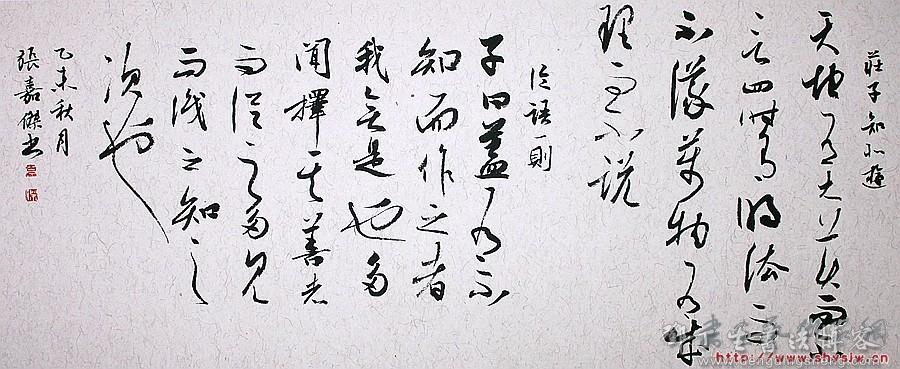 莊子知北遊
天地有大美而不
言四時有明法而
不議萬物有成
理而不說
論語一則
子曰蓋有不
知而作之者
我無是也多
聞擇其善者
而從之多見
而識之知之
次也
乙未秋月
張嘉傑書
http://www.shysjw.cn